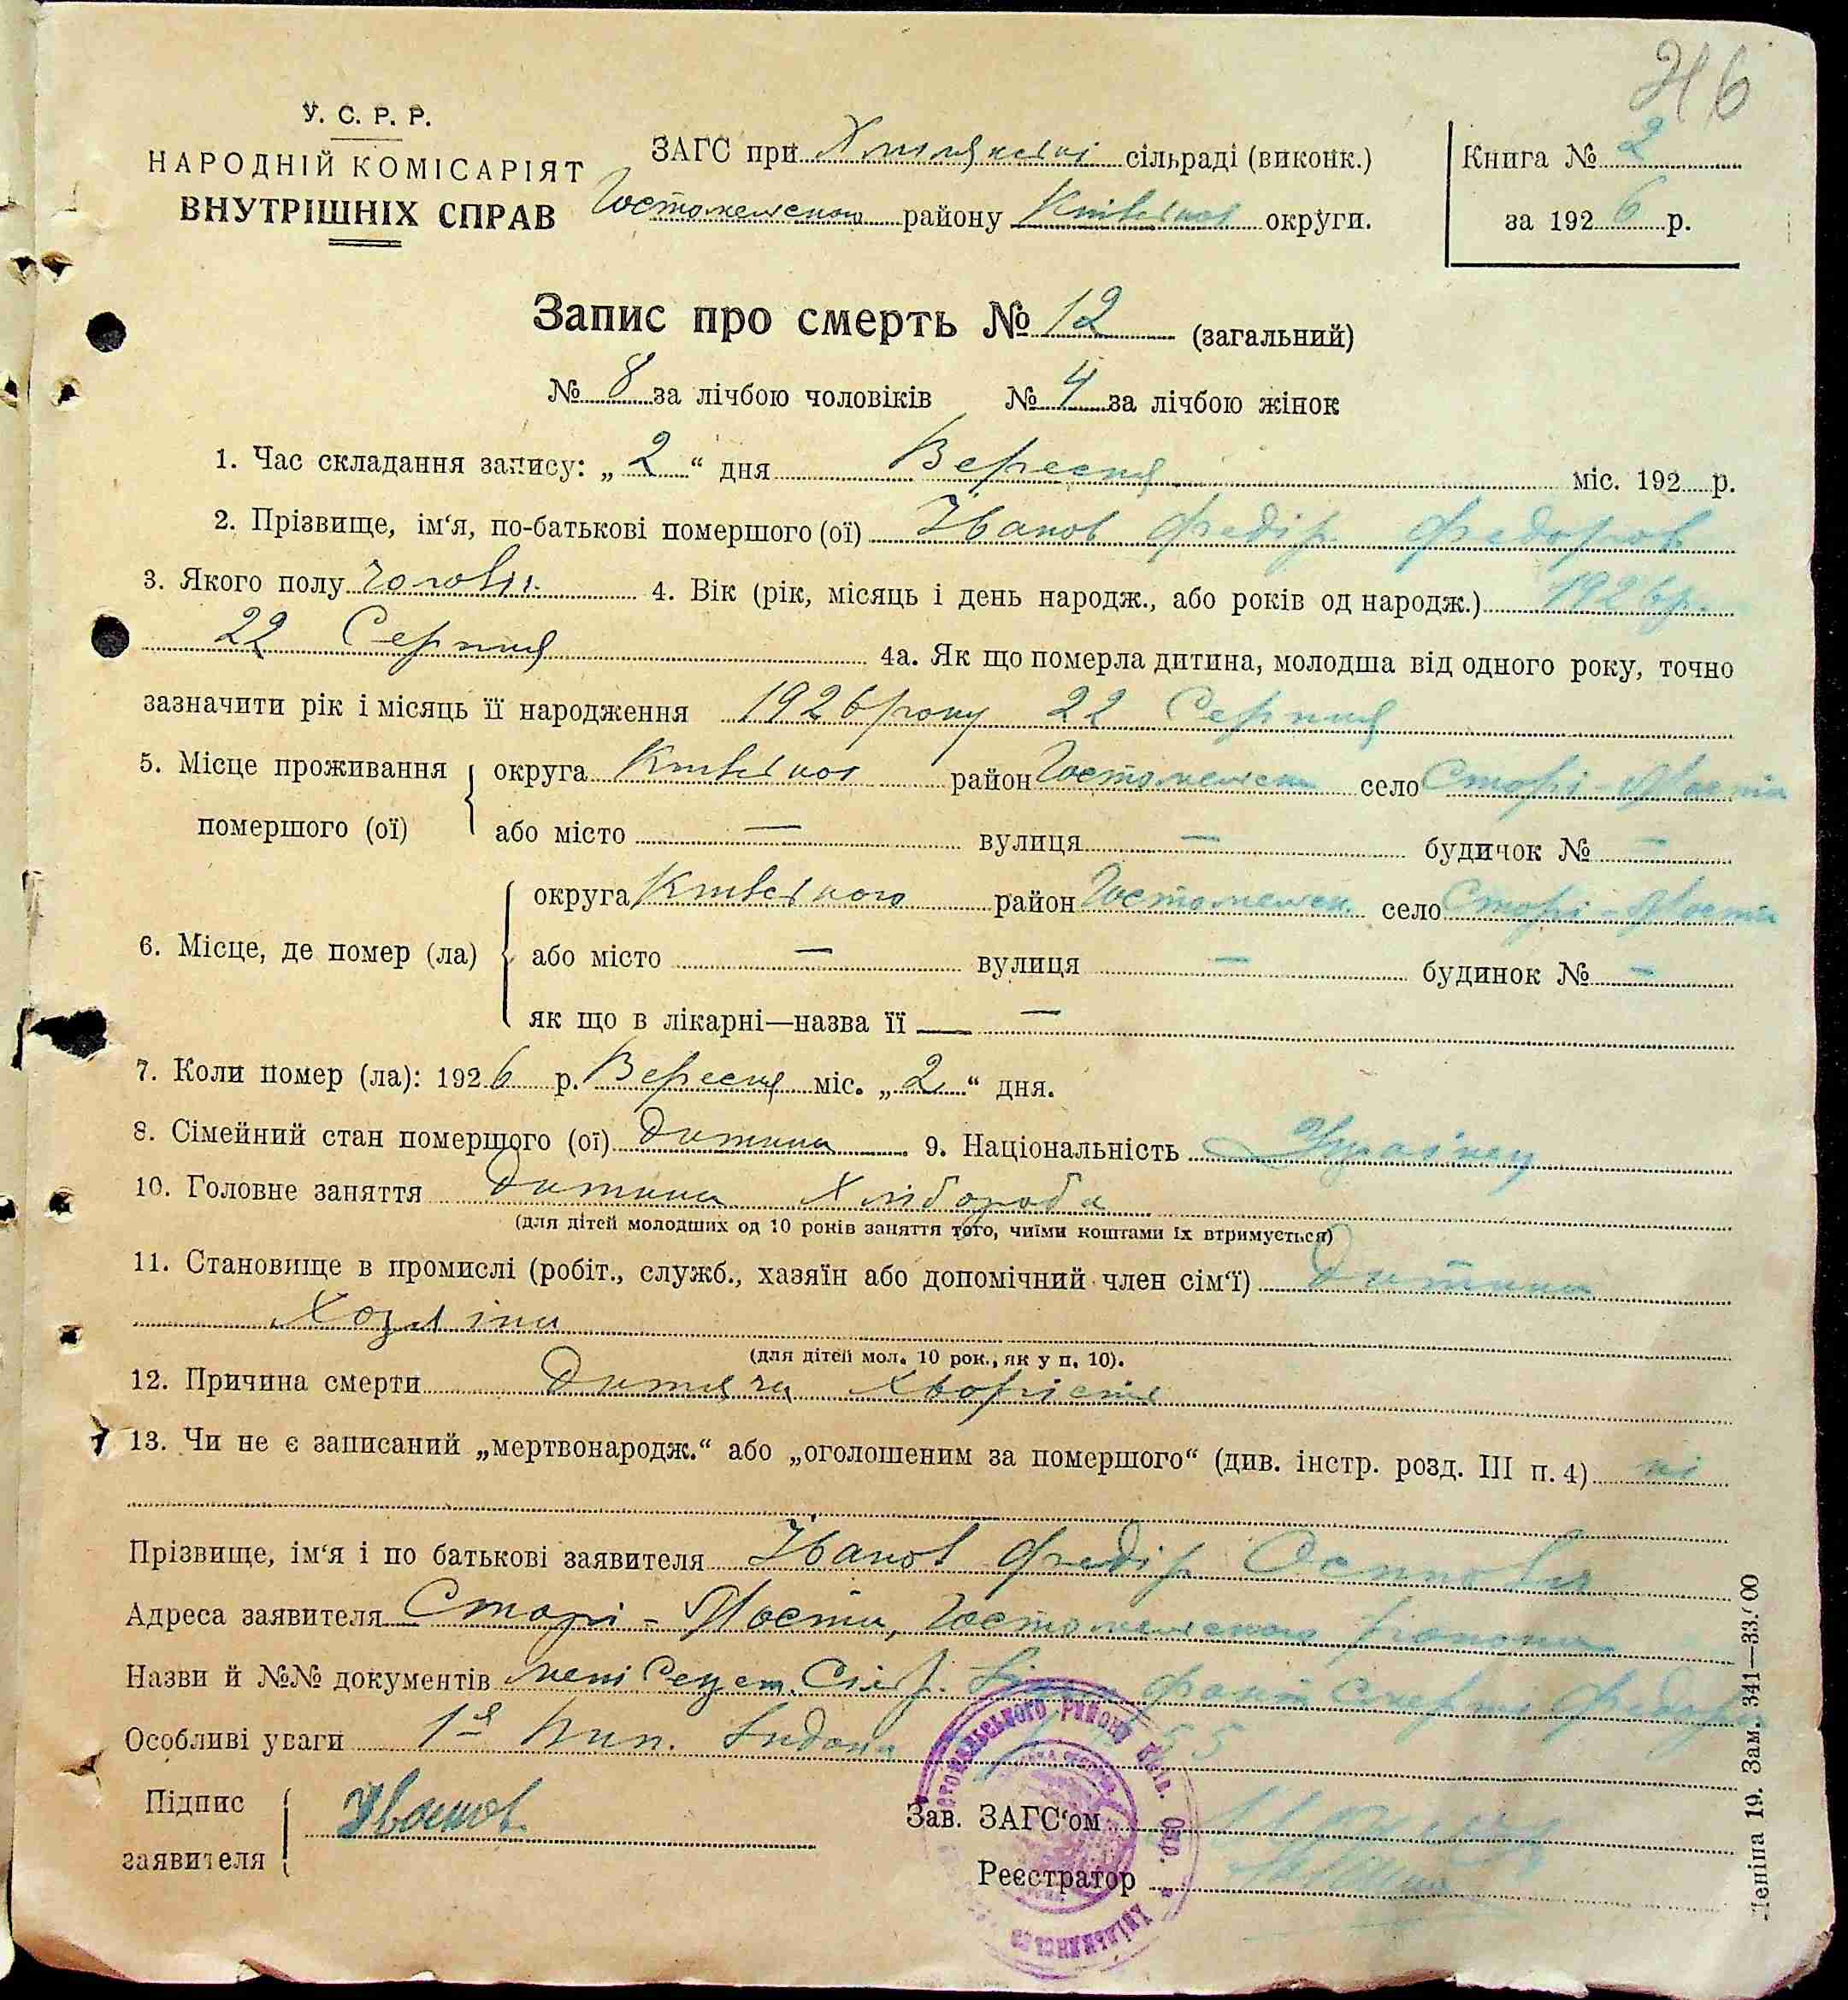 Н6
У. С. Р. Р.
НАРОДНІЙ КОМІСАРІЯТ
ВНУТРІШНІХ СПРАВ
ЗАГС при сільраді (виконк.)
Гостомельського району Київської округи.
Книга № 2
за 1926 р.
Запис про смерть № 12 (загальний)
№ 8 за лічбою чоловіків № 4 за лічбою жінок
1. Час складання запису: „2“ дня Вересня міс. 192 р.
2. Прізвище, ім‘я, по-батькові помершого (ої) Іванов Федір Федоров
3. Якого полу чоловіч. 4. Вік (рік, місяць і день народж., або років од народж.) 1926 р.
22 Серпня 4а. Як що померла дитина, молодша від одного року, точно
зазначити рік і місяць її народження 1926 року 22 Серпня
5. Місце проживання помершого (ої) округа район Гостомельськ село Старі-Мости
або місто — вулиця — будинок № —
6. Місце, де помер (ла) округа район Гостомельськ. село Старі-Мости
або місто — вулиця — будинок № —
як що в лікарні—назва її —
7. Коли помер (ла): 1926 р. Вересня міс. „2“ дня.
8. Сімейний стан помершого (ої) Дитина 9. Національність Украінец
10. Головне заняття Дитина Хлібороба
(для дітей молодших од 10 років заняття того, чиїми коштами їх втримується)
11. Становище в промислі (робіт., служб., хазяїн або допомічний член сім‘ї) Дитина
Хозяіна
(для дітей мол. 10 рок., як у п. 10).
12. Причина смерти Дитяча Хворість
13. Чи не є записаний „мертвонародж.“ або „оголошеним за помершого“ (див. інстр. розд. III п. 4) ні
Прізвище, ім‘я і по батькові заявителя Іванов Федір Осипович
Адреса заявителя Старі-Мости, Гостомельського району
Назви й №№ документів Смерти
Особливі уваги
Підпис заявителя Іванов
Зав. ЗАГС‘ом
Реєстратор
Леніна 19. Зам. 341—33.